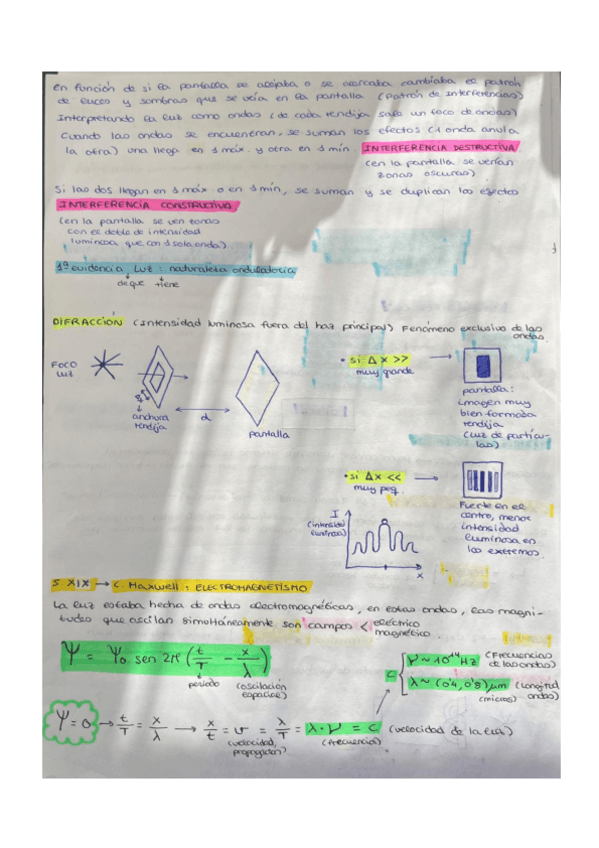 En función de si la pantalla se alejaba o se acercaba cambiaba el patrón
de luces y sombras que se veía en la pantalla (Patrón de interferencias)
Interpretando la luz como ondas (de cada rendija sale un foco de ondas)
Cuando las ondas se encuentran, se suman los efectos (1 onda anula
la otra) una llega en 1 máx. y otra en 1 min. INTERFERENCIA DESTRUCTIVA
(en la pantalla se verían
zonas oscuras)
Si las dos llegan en 1 máx. o en 1 min, se suman y se duplican los efectos
INTERFERENCIA CONSTRUCTIVA
(en la pantalla se ven zonas
con el doble de intensidad
luminosa que con 1 sola onda)
1ª evidencia Luz: naturaleza ondulatoria
de que tiene
DIFRACCIÓN (Intensidad luminosa fuera del haz principal) Fenómeno exclusivo de las
ondas.
FOCO
LUZ
Δx
anchura
rendija
d
pantalla
• si Δx >>
muy grande
pantalla:
imagen muy
bien formada
rendija
(luz de partícu-
las)
• si Δx <<
muy peq.
I
(intensidad
luminosa)
x
Fuerte en el
centro, menor
intensidad
luminosa en
los extremos.
S. XIX → C. Maxwell: ELECTROMAGNETISMO
La luz estaba hecha de ondas electromagnéticas, en estas ondas, las magni-
tudes que oscilan simultáneamente son campos < eléctrico
magnético
Ψ = Ψ₀ sen 2π (t/T − x/λ)
periodo (oscilación
espacial)
c { ν ~ 10¹⁴ Hz (Frecuencias
de las ondas)
λ ~ (0'4, 0'8) μm (longitud
(micras) ondas)
Ψ = 0 → t/T = x/λ → x/t = v = λ/T = λ · ν = c (velocidad de la luz)
(velocidad
propagación) (frecuencia)